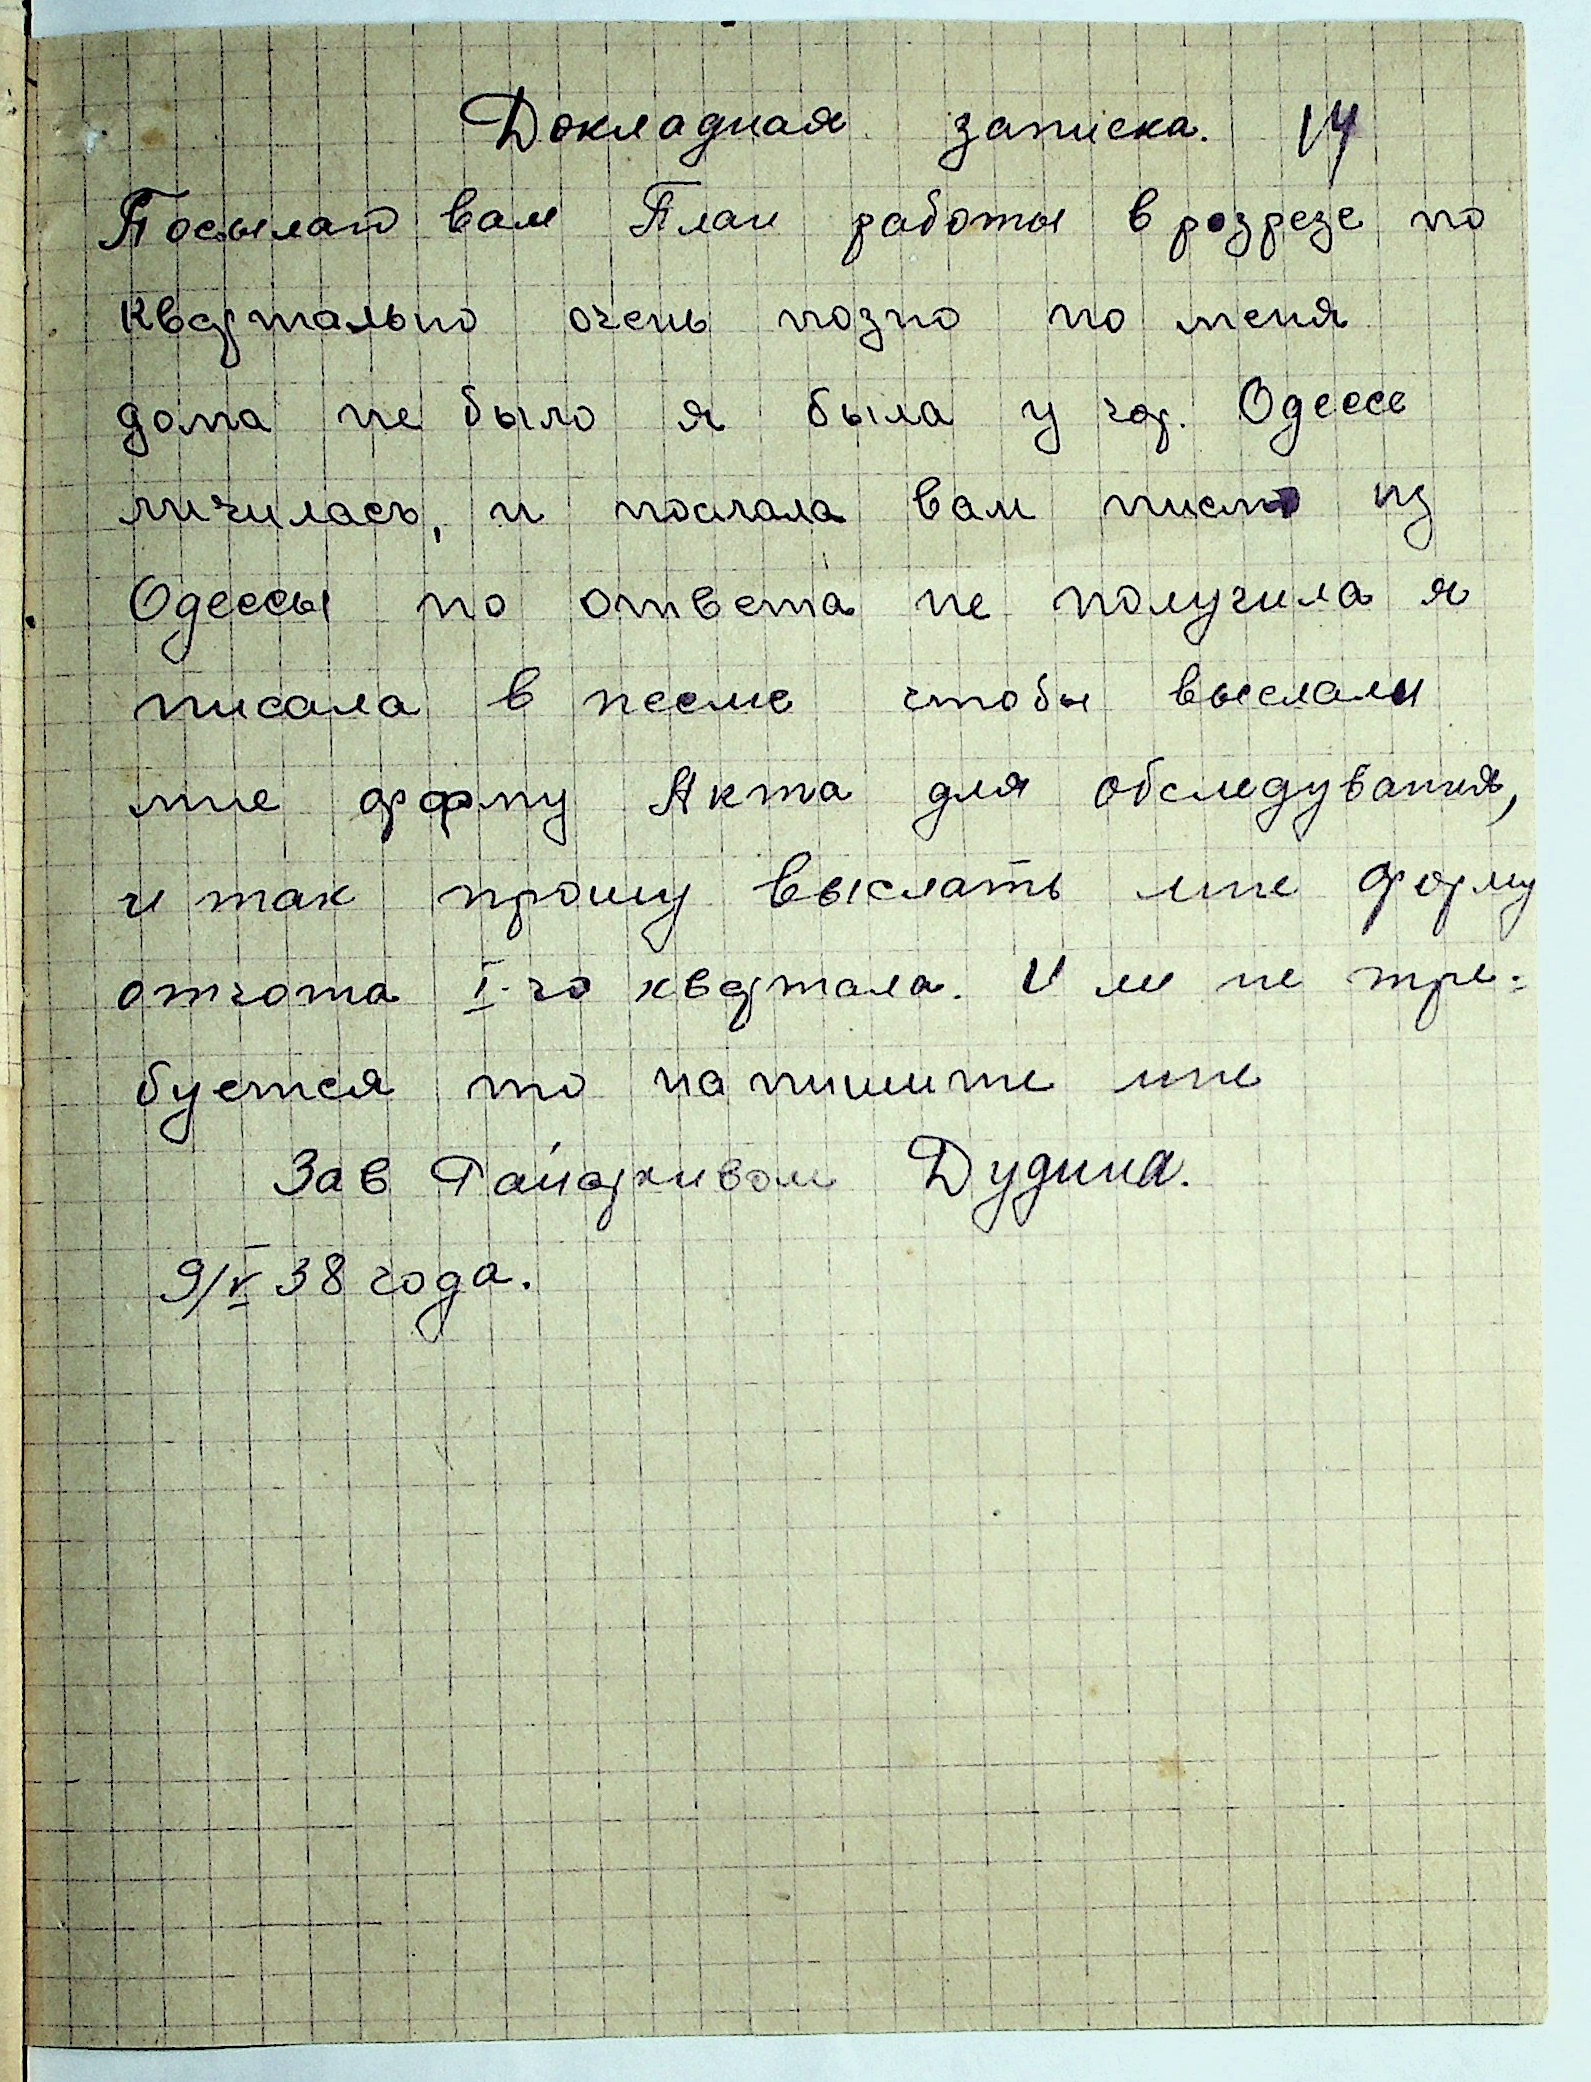 Докладная записка. 14
Посылаю вам План работы в розрезе по
квартально очень позно но меня
дома не было я была у гор. Одессе
личилась, и послала вам писмо из
Одессы но ответа не получила я
писала в песме чтобы выслали
мне форму Акта для обследувания,
и так прошу выслать мне форму
отчота I-го квартала. И ли не тре-
буется то напишите мне
Зав Райархивом Дудина.
9/V 38 года.